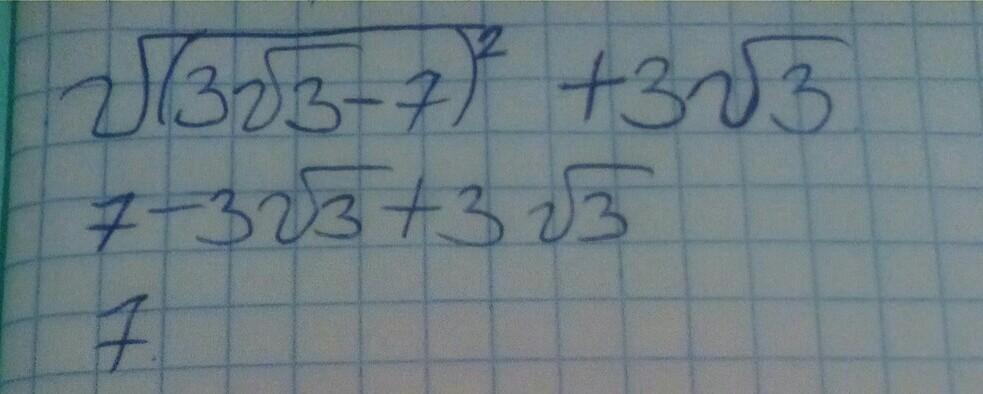 √(3√3-7)² +3√3
7-3√3+3√3
7.